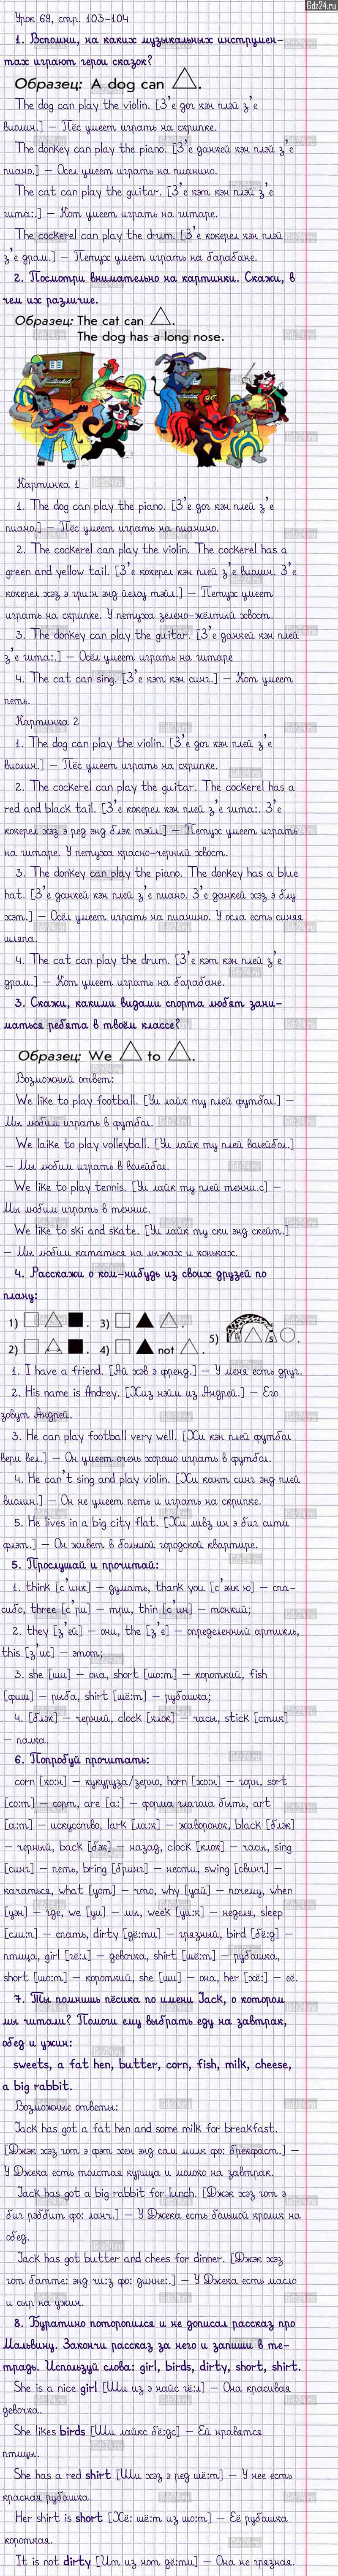 Gdz24.ru
Урок 69, стр. 103-104
1. Вспомни, на каких музыкальных инструмен-
тах играют герои сказок?
Образец: A dog can △.
The dog can play the violin. [З'е дог кэн плэй з'е
виолин.] – Пёс умеет играть на скрипке.
The donkey can play the piano. [З'е данкей кэн плэй з'е
пиано.] – Осел умеет играть на пианино.
The cat can play the guitar. [З'е кэт кэн плэй з'е
гита:.] – Кот умеет играть на гитаре.
The cockerel can play the drum. [З'е кокерел кэн плэй
з'е драм.] – Петух умеет играть на барабане.
2. Посмотри внимательно на картинки. Скажи, в
чем их различие.
Образец: The cat can △.
The dog has a long nose.
Картинка 1
1. The dog can play the piano. [З'е дог кэн плей з'е
пиано.] – Пёс умеет играть на пианино.
2. The cockerel can play the violin. The cockerel has a
green and yellow tail. [З'е кокерел кэн плей з'е виолин. З'е
кокерел хэз э гри:н энд йелоу тэйл.] – Петух умеет
играть на скрипке. У петуха зелено-жёлтый хвост.
3. The donkey can play the guitar. [З'е данкей кэн плей
з'е гита:.] – Осёл умеет играть на гитаре
4. The cat can sing. [З'е кэт кэн синг.] – Кот умеет
петь.
Картинка 2
1. The dog can play the violin. [З'е дог кэн плей з'е
виолин.] – Пёс умеет играть на скрипке.
2. The cockerel can play the guitar. The cockerel has a
red and black tail. [З'е кокерел кэн плей з'е гита:. З'е
кокерел хэз э ред энд блэк тэйл.] – Петух умеет играть
на гитаре. У петуха красно-черный хвост.
3. The donkey can play the piano. The donkey has a blue
hat. [З'е данкей кэн плей з'е пиано. З'е данкей хэз э блу
хэт.] – Осёл умеет играть на пианино. У осла есть синяя
шляпа.
4. The cat can play the drum. [З'е кэт кэн плей з'е
драм.] – Кот умеет играть на барабане.
3. Скажи, какими видами спорта любят зани-
маться ребята в твоём классе?
Образец: We △ to △.
Возможный ответ:
We like to play football. [Уи лайк ту плей футбол.] –
Мы любим играть в футбол.
We laike to play volleyball. [Уи лайк ту плей волейбол.]
– Мы любим играть в волейбол.
We like to play tennis. [Уи лайк ту плей тенни.с] –
Мы любим играть в теннис.
We like to ski and skate. [Уи лайк ту ски энд скейт.]
– Мы любим кататься на лыжах и коньках.
4. Расскажи о ком-нибудь из своих друзей по
плану:
1) □ △ ■. 3) □ ▲ △.
2) □ △ ■. 4) □ ▲ not △. 5)
1. I have a friend. [Ай хэв э френд.] – У меня есть друг.
2. His name is Andrey. [Хиз нэйм из Андрей.] – Его
зовут Андрей.
3. He can play football very well. [Хи кэн плей футбол
вери вел.] – Он умеет очень хорошо играть в футбол.
4. He can't sing and play violin. [Хи кант синг энд плей
виолин.] – Он не умеет петь и играть на скрипке.
5. He lives in a big city flat. [Хи ливз ин э биг сити
флэт.] – Он живет в большой городской квартире.
5. Прослушай и прочитай:
1. think [с'инк] – думать, thank you [с'энк ю] – спа-
сибо, three [с'ри] – три, thin [с'ин] – тонкий;
2. they [з'ей] – они, the [з'е] – определенный артикль,
this [з'ис] – этот;
3. she [ши] – она, short [шо:т] – короткий, fish
[фиш] – рыба, shirt [шё:т] – рубашка;
4. [блэк] – черный, clock [клок] – часы, stick [стик]
– палка.
6. Попробуй прочитать:
corn [ко:н] – кукуруза/зерно, horn [хо:н] – горн, sort
[со:т] – сорт, are [а:] – форма глагола быть, art
[а:т] – искусство, lark [ла:к] – жаворонок, black [блэк]
– черный, back [бэк] – назад, clock [клок] – часы, sing
[синг] – петь, bring [бринг] – нести, swing [свинг] –
качаться, what [уот] – что, why [уай] – почему, when
[уэн] – где, we [уи] – мы, week [уи:к] – неделя, sleep
[сли:п] – спать, dirty [дё:ти] – грязный, bird [бё:д] –
птица, girl [гё:л] – девочка, shirt [шё:т] – рубашка,
short [шо:т] – короткий, she [ши] – она, her [хё:] – её.
7. Ты помнишь пёсика по имени Jack, о котором
мы читали? Помоги ему выбрать еду на завтрак,
обед и ужин:
sweets, a fat hen, butter, corn, fish, milk, cheese,
a big rabbit.
Возможные ответы:
Jack has got a fat hen and some milk for breakfast.
[Джэк хэз гот э фэт хен энд сам милк фо: брекфаст.] –
У Джека есть толстая курица и молоко на завтрак.
Jack has got a big rabbit for lunch. [Джэк хэз гот э
биг рэббит фо: ланч.] – У Джека есть большой кролик на
обед.
Jack has got butter and chees for dinner. [Джэк хэз
гот батте: энд чи:з фо: динне:.] – У Джека есть масло
и сыр на ужин.
8. Буратино поторопился и не дописал рассказ про
Мальвину. Закончи рассказ за него и запиши в те-
традь. Используй слова: girl, birds, dirty, short, shirt.
She is a nice girl [Ши из э найс гё:л] – Она красивая
девочка.
She likes birds [Ши лайкс бё:дс] – Ей нравятся
птицы.
She has a red shirt [Ши хэз э ред шё:т] – У нее есть
красная рубашка.
Her shirt is short [Хё: шё:т из шо:т] – Её рубашка
короткая.
It is not dirty [Ит из нот дё:ти] – Она не грязная.